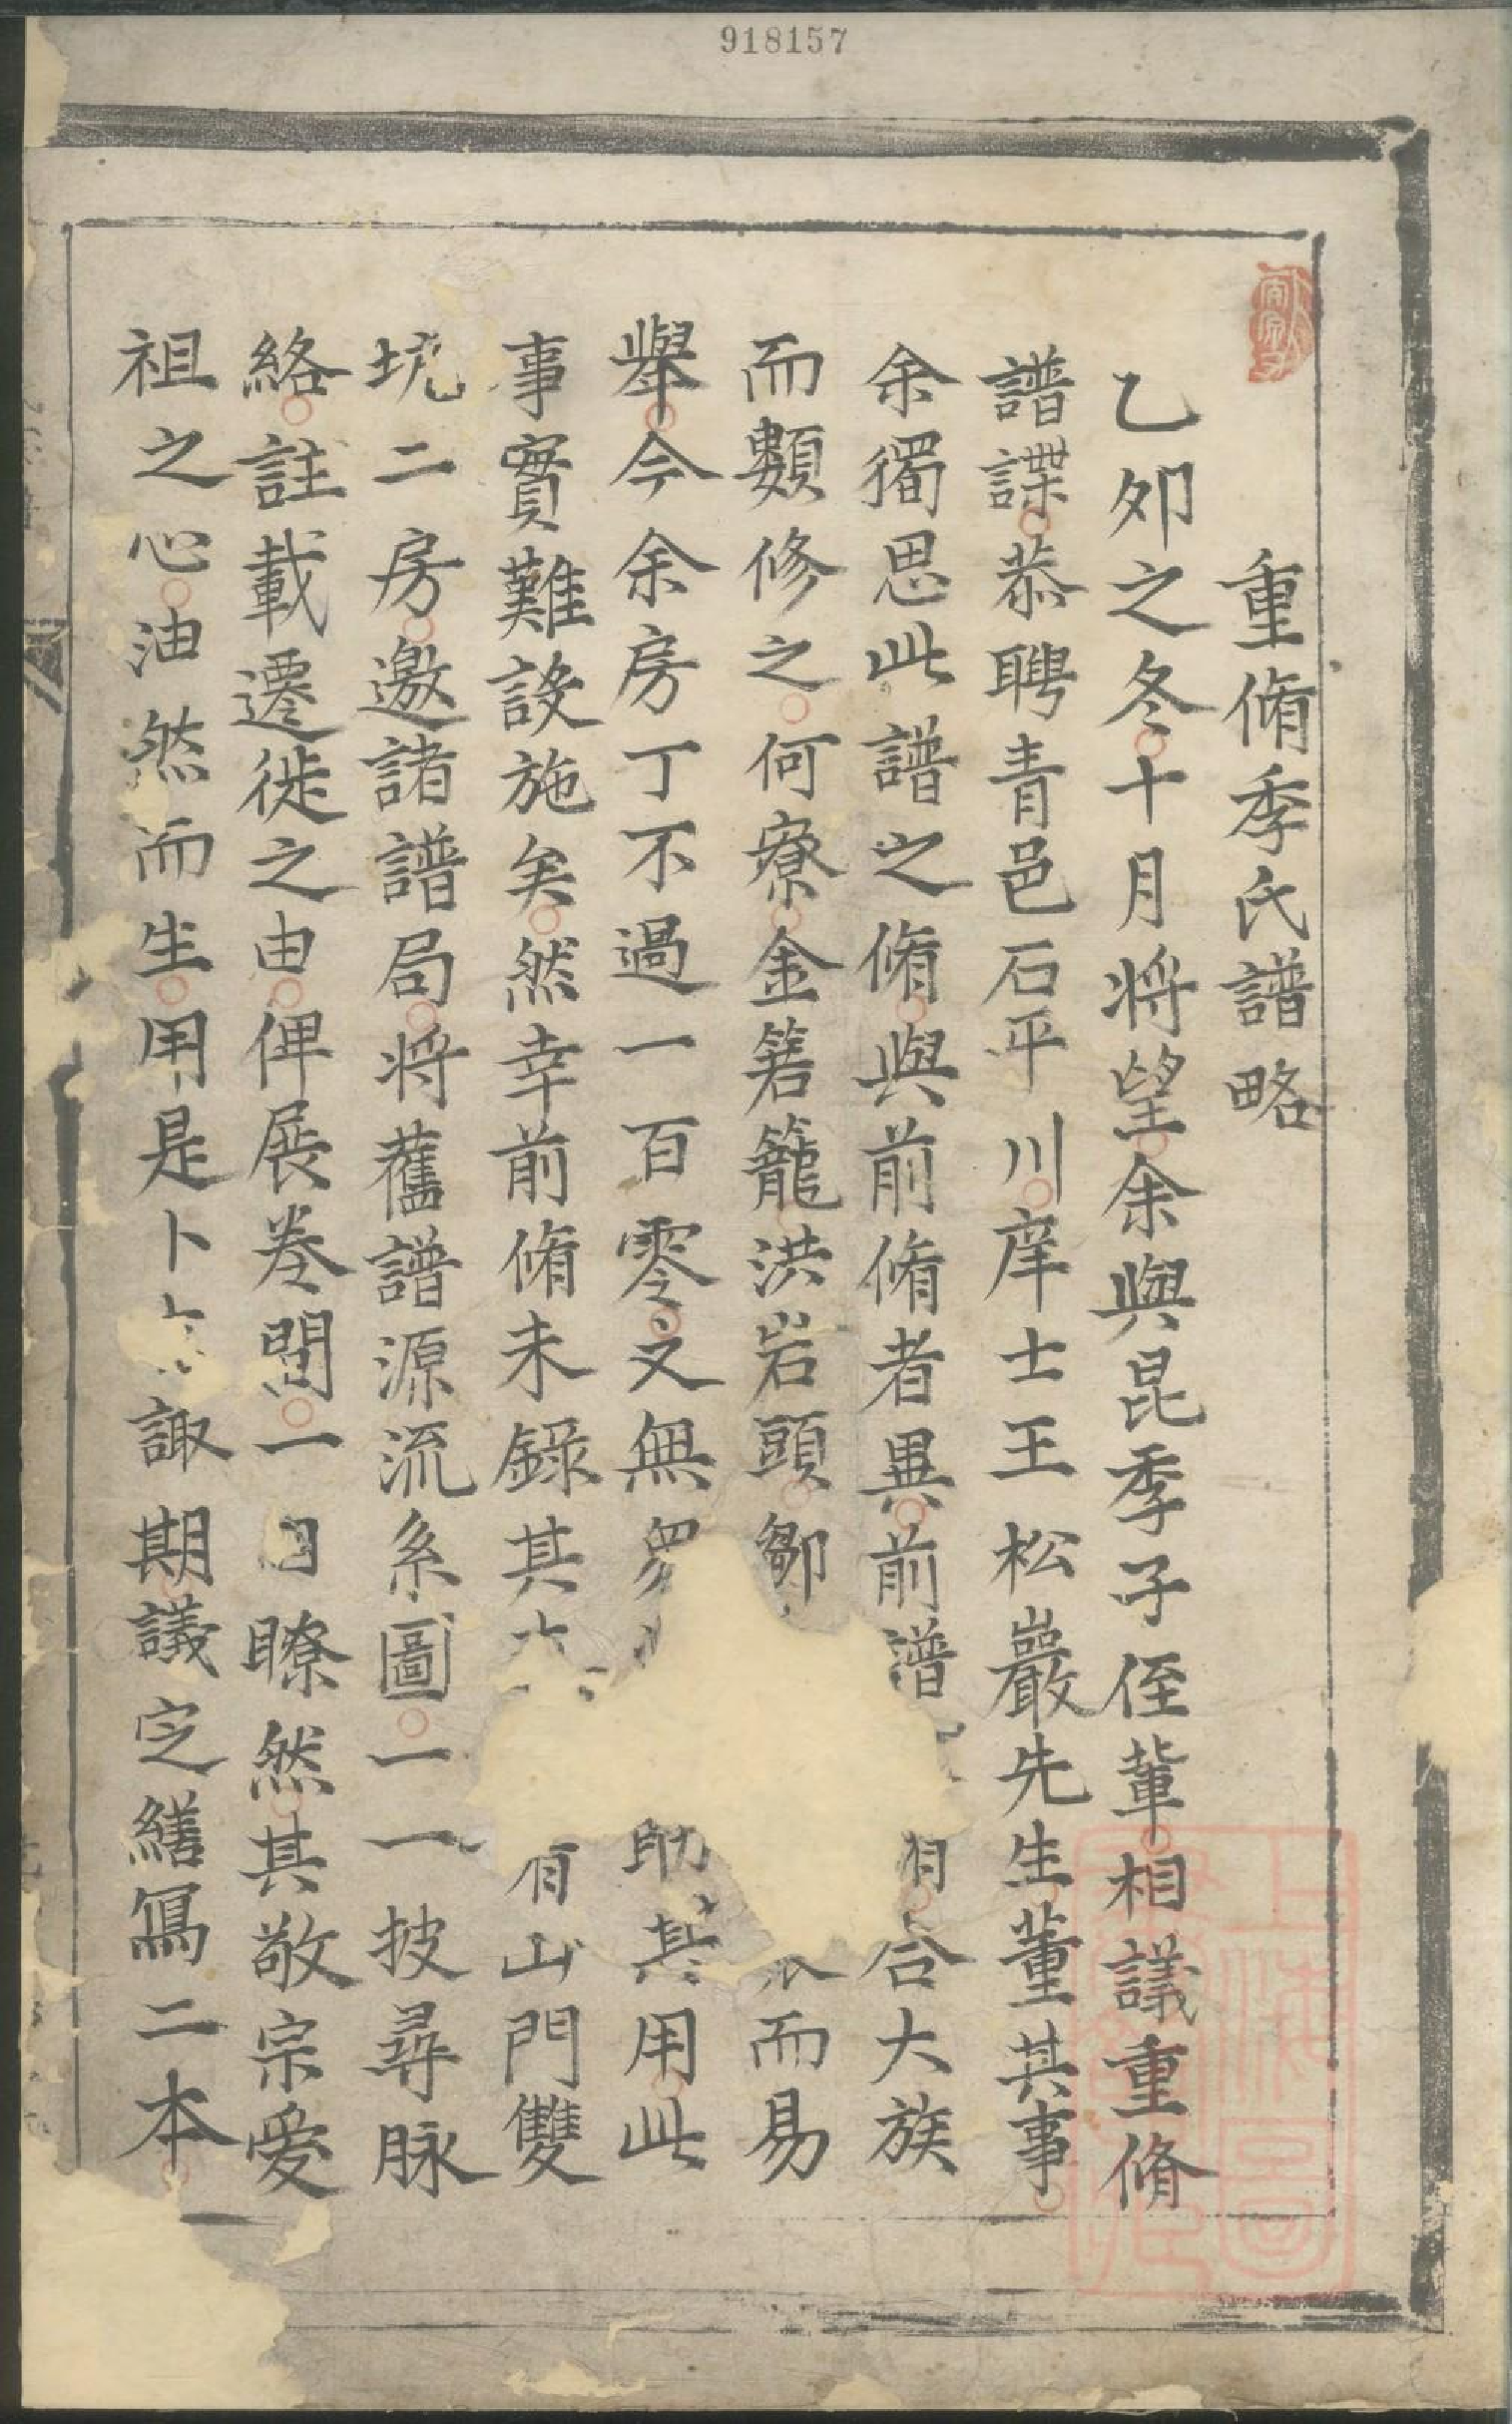 918157
重脩季氏譜略
乙夘之冬十月将望余與昆季子侄輩相議重脩
譜諜恭聘青邑石平川庠士王松巖先生董其事
余獨思此譜之脩與前脩者異前譜合大族
而類修之何寮金箬籠洪岩頭鄒而易
舉今余房丁不過一百零又無助其用此
事實難設施矣然幸前脩未錄其有山門雙
坑二房邀諸譜局将舊譜源流系圖一一披尋脉
絡註載遷徙之由俾展卷閱一目瞭然其敬宗愛
祖之心油然而生用是卜諏期議定繕寫二本
上海圖書館藏